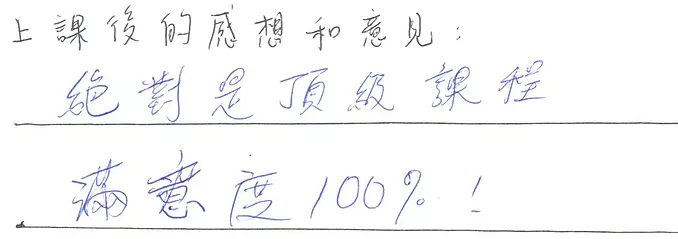 上課後的感想和意見:
絕對是頂級課程
滿意度100%!